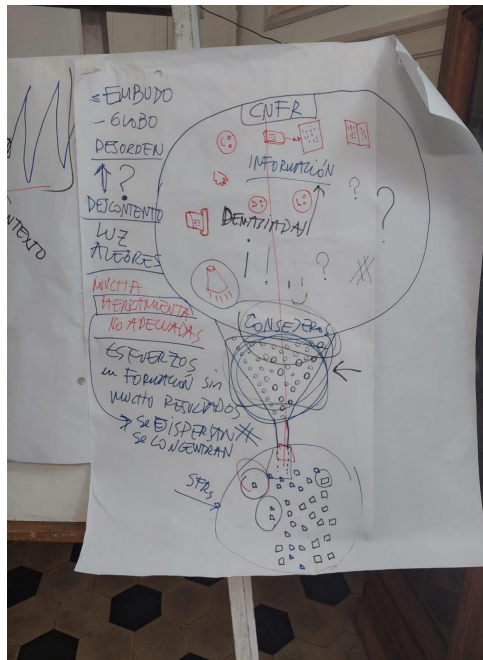 EMBUDO
- GLOBO
DESORDEN
?
DESCONTENTO
LUZ
ALEGRES
MUCHA
HERRAMIENTA
NO ADECUADAS
ESFUERZOS
en FORMACIÓN sin
MUCHO RESULTADOS
→ Se DISPERSAN
Se CONCENTRAN
CNFR
INFORMACIÓN
DEMASIADAS
? ?
¡ ! ?
CONSEJEROS
SFRs